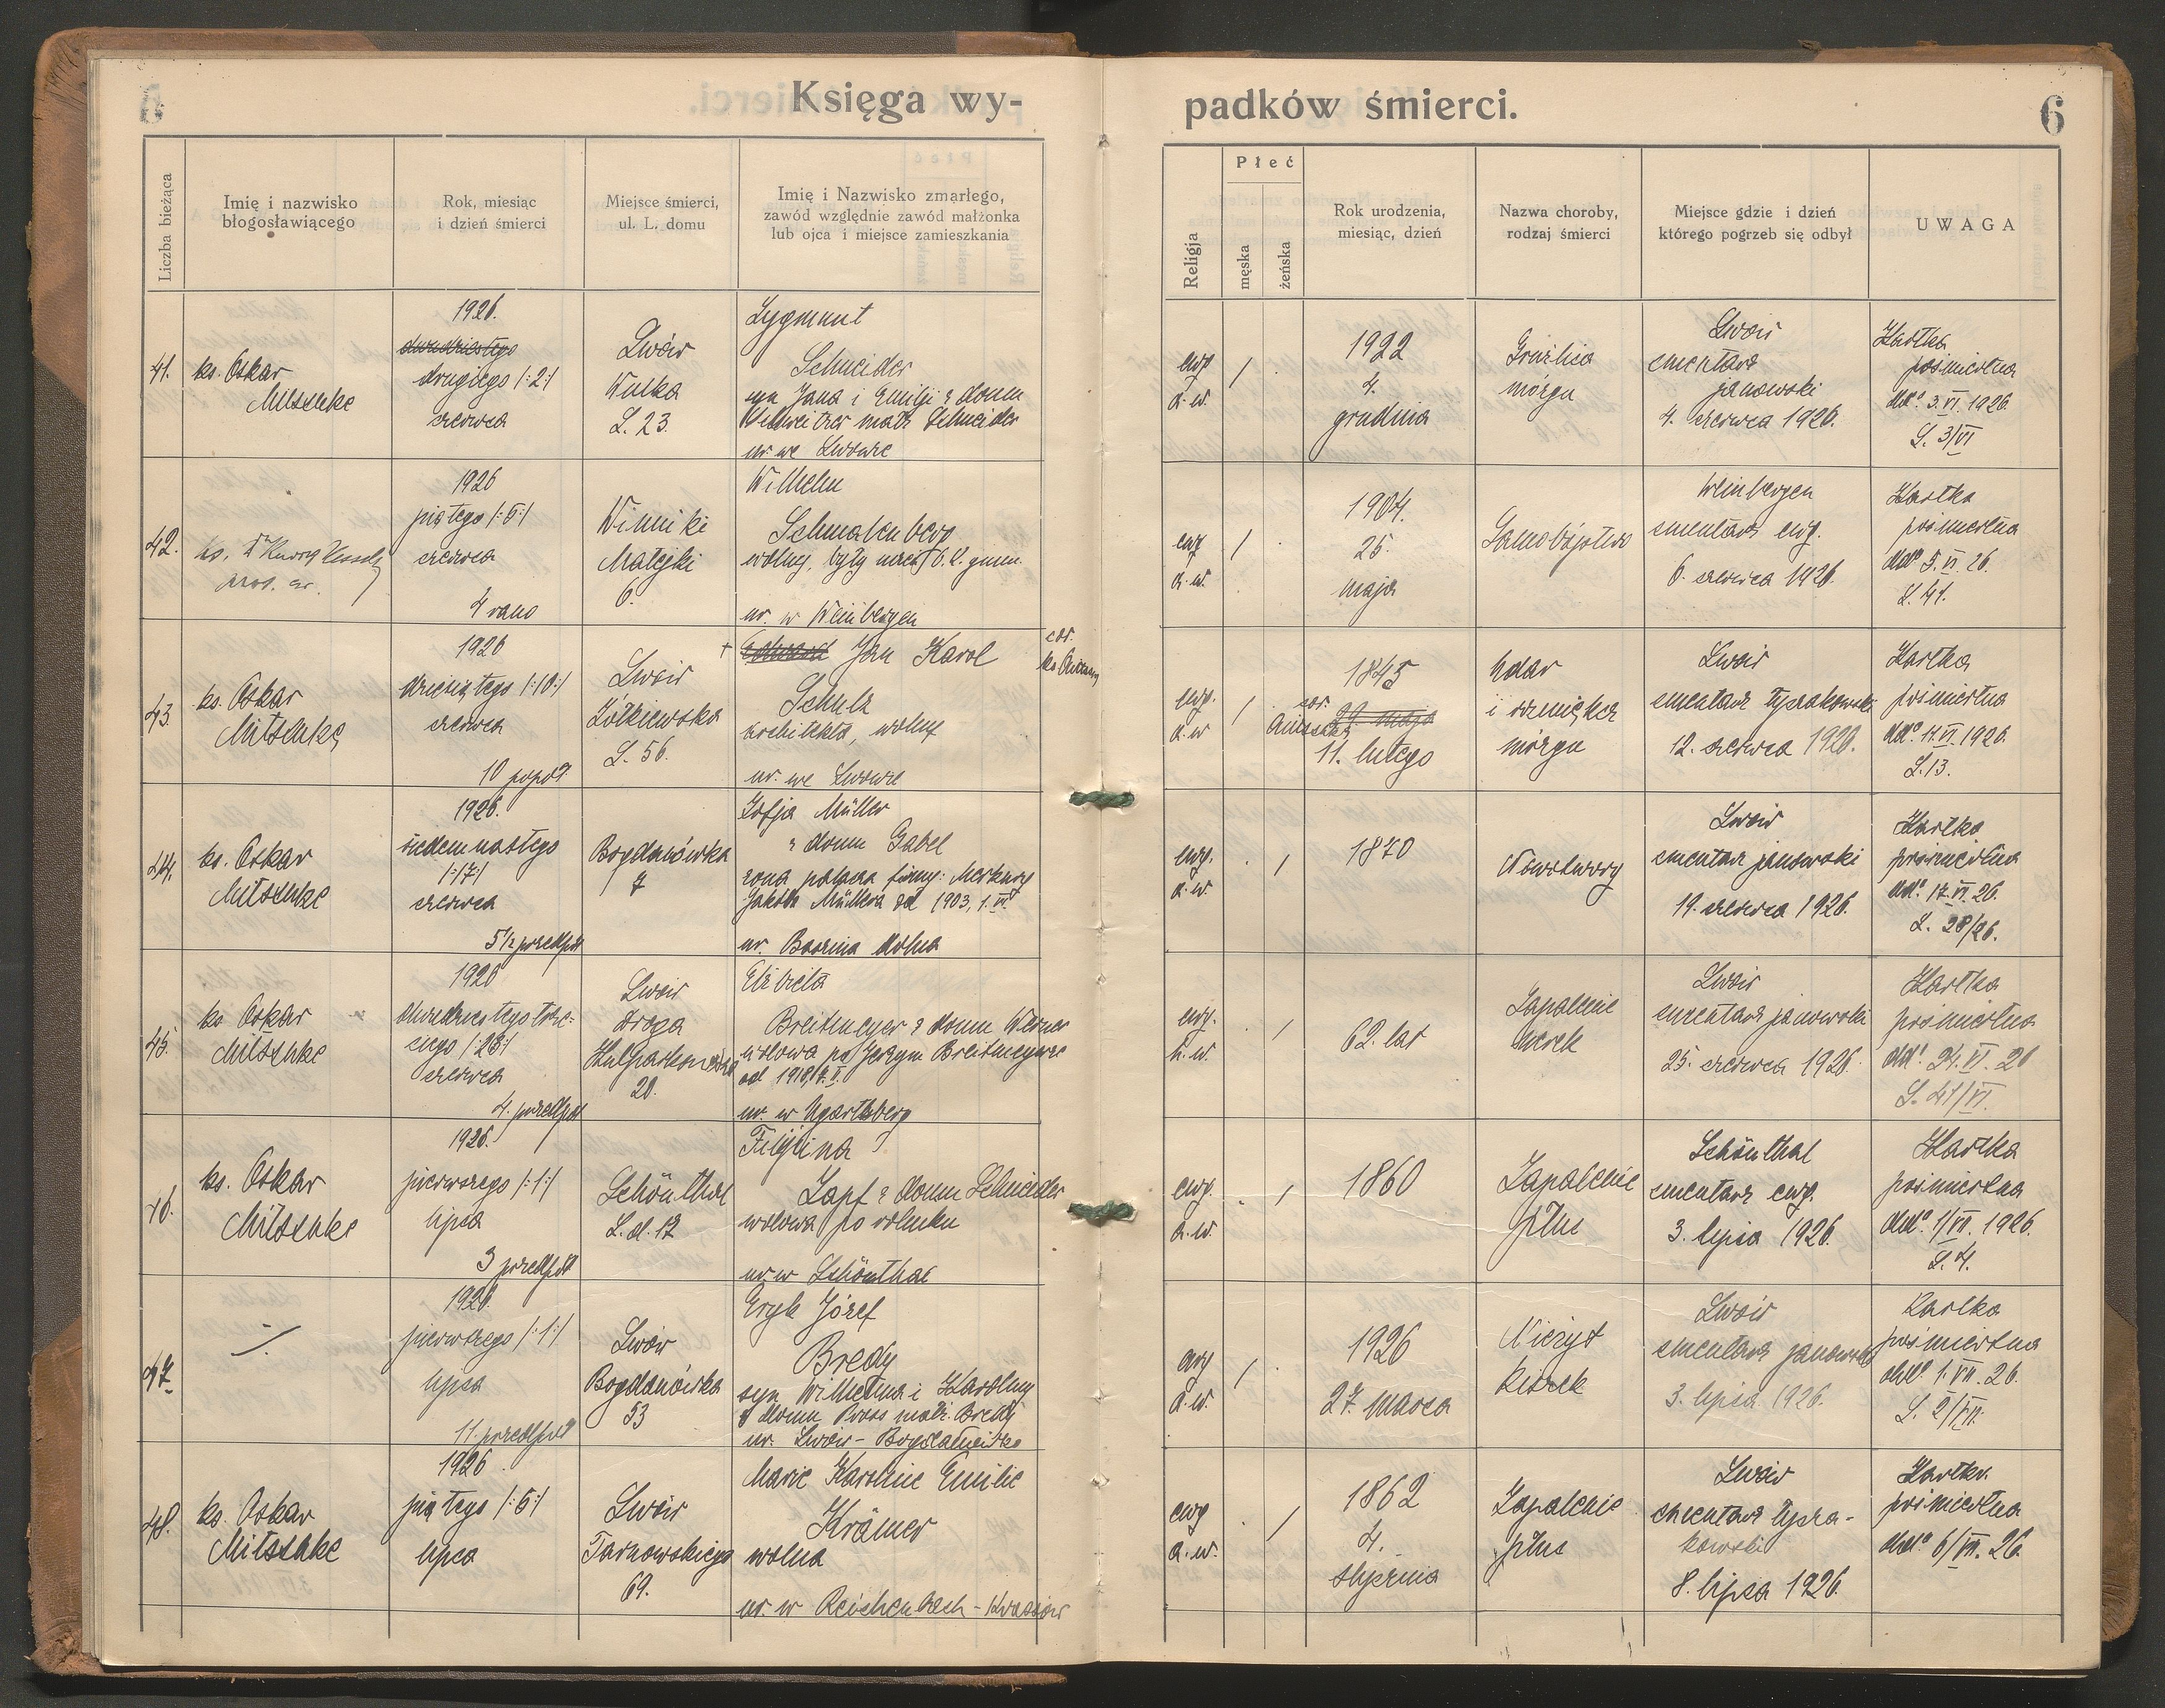 Księga wy-
padków śmierci.
6
Liczba bieżąca
Imię i nazwisko
błogosławiącego
Rok, miesiąc
i dzień śmierci
Miejsce śmierci,
ul. L. domu
Imię i Nazwisko zmarłego,
zawód względnie zawód małżonka
lub ojca i miejsce zamieszkania
Religja
Płeć
męska
żeńska
Rok urodzenia,
miesiąc, dzień
Nazwa choroby,
rodzaj śmierci
Miejsce gdzie i dzień
którego pogrzeb się odbył
UWAGA
41.
ks. Oskar
Mitschke
1926.
dwudziestego
drugiego /:2:/
czerwca
Lwów
Wulka
L. 23.
Zygmunt
Schneider
syn Jana i Emilji z domu
małż. Schneider
ur. we Lwowie
ewg.
a. w.
/
1922
4.
grudnia
Gruźlica
mózgu
Lwów
cmentarz
janowski
4. czerwca 1926.
Kartka
pośmiertna
ddo. 3.VI.1926.
L. 3/VI
42.
1926
piątego /:5:/
czerwca
4 rano
Winniki
Matejki
6.
Wilhelm
Schmalenberg
wolny, były uczeń 6. kl. gimn.
ur. w Weinbergen
ewg.
a. w.
/
1904.
25.
maja
Samobójstwo
Weinbergen
cmentarz ewg.
6. czerwca 1926.
Kartka
pośmiertna
ddo 5.VI.26.
L. 41.
43
ks. Oskar
Mitschke
1926
dziesiątego /:10:/
czerwca
10 popoł.
Lwów
Żółkiewska
L. 56.
+ Edward Jan Karol
Schulz
architekta, wolny
ur. we Lwowie
cor.
ewg.
a. w
/
1845
cor.
29. maja
11. lutego
Udar
i rozmiękcz
mózgu
Lwów
cmentarz łyczakowski
12. czerwca 1926.
Kartka
pośmiertna
ddo. 11.VI.1926.
L. 13.
44.
ks. Oskar
Mitschke
1926.
siedemnastego
/:17:/
czerwca
5 1/2 przedpoł
Bogdanówka
7
Zofja Müller
z domu Gabel
Jakóba Müllera od 1903, 1.VI.
ur. Dolna
ewg.
a. w.
/
1870
Nowotwory
Lwów
cmentarz janowski
19. czerwca 1926.
Kartka
pośmiertna
ddo. 17.VI.26.
L. 28/26.
45.
ks Oskar
Mitschke
1926
dwudziestego trze-
ciego /:23:/
czerwca
4. przedpoł
Lwów
droga
Kulparkowska
20.
Elżbieta
Breitmeyer z domu Werner
wdowa po Jerzym Breitmeyerze
ur. w Ugartsberg
ewg.
h. w.
/
62. lat
Zapalenie
nerek
Lwów
cmentarz janowski
25. czerwca 1926.
Kartka
pośmiertna
ddo. 24.VI.26
L. 41/VI.
46.
ks. Oskar
Mitschke
1926.
pierwszego /:1:/
lipca
3 przedpoł
Schönthal
L. d. 12
Filipina
Zapf z domu Schneider
wdowa po rolniku
ur. w Schönthal
ewg.
a. w.
/
1860
Zapalenie
płuc
Schönthal
cmentarz ewg.
3. lipca 1926.
Kartka
pośmiertna
ddo. 1/VII.1926.
L. 4.
47
1926.
pierwszego /:1:/
lipca
11. przedpoł
Lwów
Bogdanówka
53
Eryk Józef
Bredy
syn Wilhelma i Karoliny
z domu Pross małż. Bredy
ur. Lwów - Bogdanówka
ewg
a. w.
/
1926
27. marca
Nieżyt
kiszek
Lwów
cmentarz janowski
3. lipca 1926.
Kartka
pośmiertna
ddo. 1.VII.26.
L. 2/VII.
48.
ks. Oskar
Mitschke
1926
piątego /:5:/
lipca
Lwów
Tarnowskiego
69.
Marie Karoline Emilie
Krämer
wolna
ur. w Reichenbach - Krasów
ewg
a. w.
/
1862
4.
stycznia
Zapalenie
płuc
Lwów
cmentarz łycza-
kowski
8. lipca 1926.
Kartka
pośmiertna
ddo. 6/VII.26.